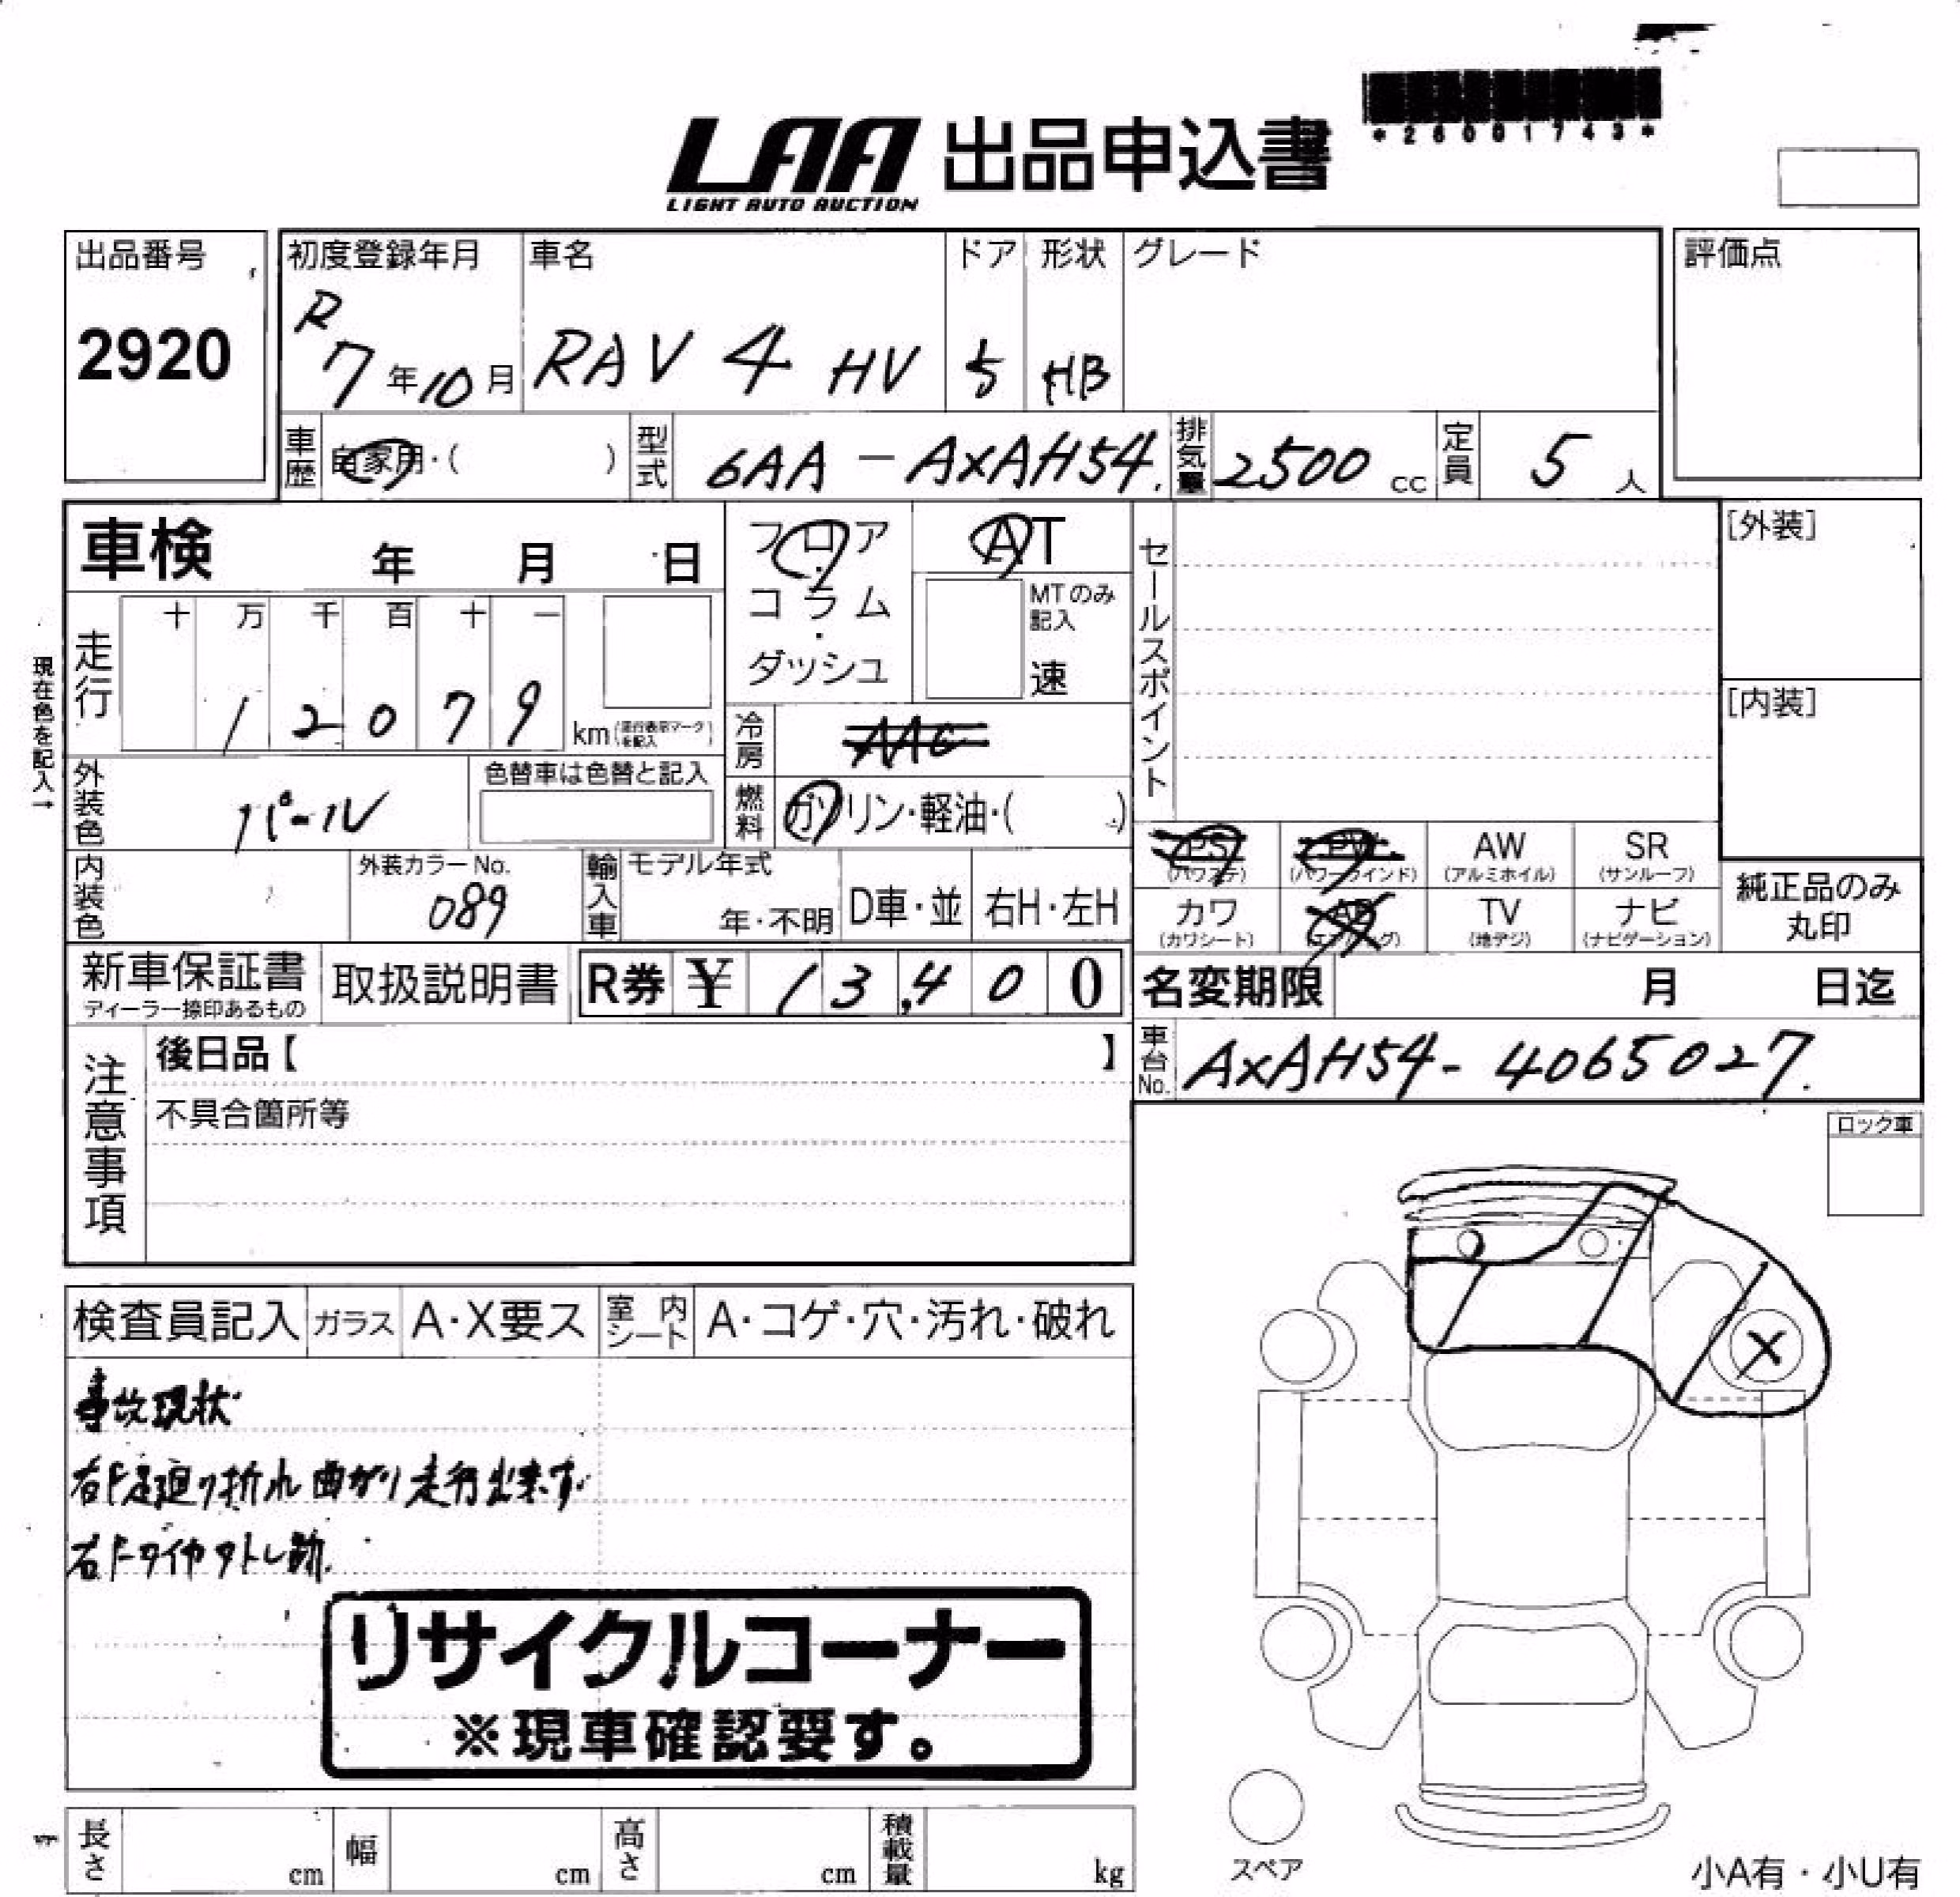 *26001743*
LAA 出品申込書
LIGHT AUTO AUCTION
出品番号
2920
初度登録年月
R
7年10月
車名
RAV 4 HV
ドア
5
形状
HB
グレード
評価点
車歴
自家用・( )
型式
6AA - AXAH54
排気量
2500 cc
定員
5 人
車検 年 月 日
フロア
・
コラム
・
ダッシュ
AT
MTのみ
記入
速
セールスポイント
[外装]
[内装]
現在色を記入→
走行
十 万 千 百 十 一
1 2 0 7 9
km (走行表示マークを記入)
冷房
外装色
パール
色替車は色替と記入
燃料
ガソリン・軽油・( )
内装色
外装カラーNo.
089
輸入車
モデル年式
年・不明
D車・並
右H・左H
PS
(パワステ)
PW
(パワーウインド)
AW
(アルミホイル)
SR
(サンルーフ)
カワ
(カワシート)
AB
(エアバッグ)
TV
(地デジ)
ナビ
(ナビゲーション)
純正品のみ
丸印
新車保証書
ディーラー捺印あるもの
取扱説明書
R券 ¥ 13,400
名変期限 月 日迄
車台No.
AXAH54-4065027
注意事項
後日品【 】
不具合箇所等
ロック車
検査員記入
ガラス
A・X要ス
室内シート
A・コゲ・穴・汚れ・破れ
事故現状
右F足廻り折れ曲がり走行出来ず
右FタイヤアトレX
リサイクルコーナー
※現車確認要す。
X
スペア
長さ cm
幅 cm
高さ cm
積載量 kg
小A有・小U有